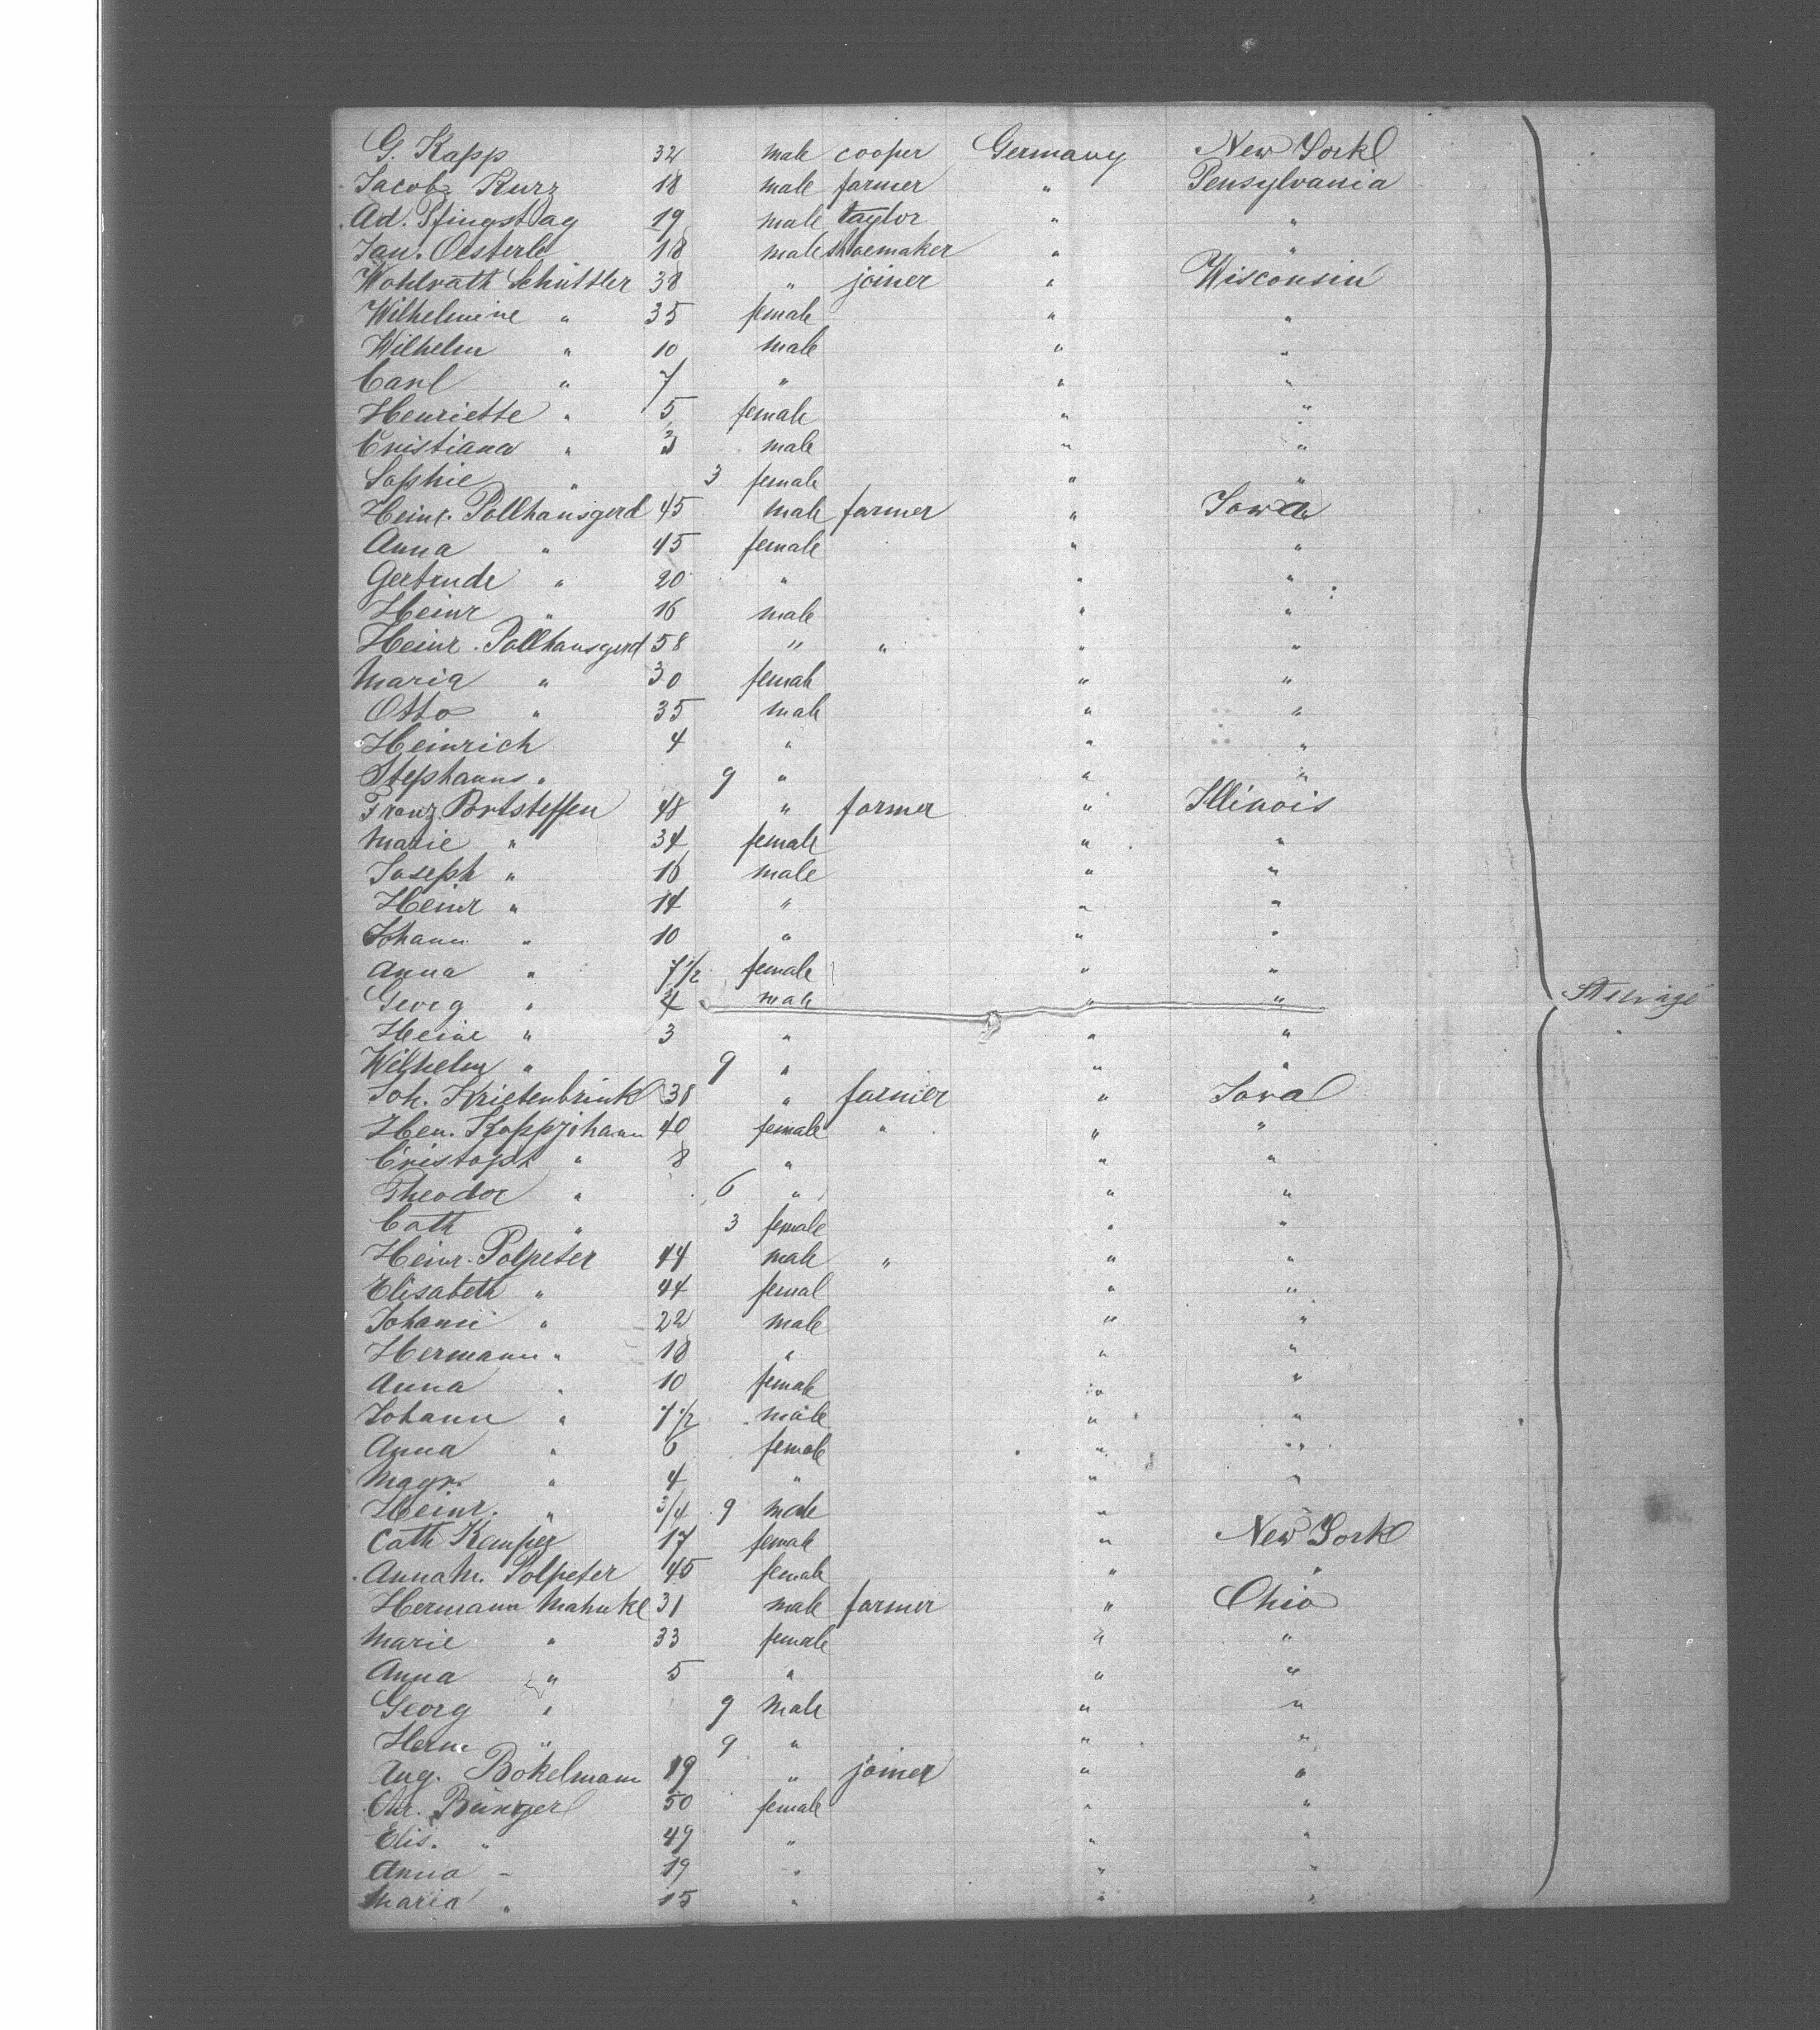 G. Kapp 32 male cooper Germany New York
Jacob Kurz 18 male farmer " Pensylvania
Ad. Pfingsttag 19 male taylor " "
Jan. Oesterle 18 male shoemaker " "
Wohlrath Schüttler 38 " joiner " Wisconsin
Wilhelmine " 35 female " "
Wilhelm " 10 male " "
Carl " 7 " " "
Henriette " 5 female " "
Cristiana " 3 male " "
Sophie " 3 female " "
Heinr. Pollhansgerd 45 male farmer " Iowa
Anna " 45 female " "
Gertrude " 20 " " "
Heinr " 16 male " "
Heinr. Pollhansgerd 58 " " " "
Maria " 30 female " "
Otto " 35 male " "
Heinrich 4 " " "
Stephanus " 9 " " "
Franz Bortsteffen 48 " farmer " Illinois
Marie " 34 female " "
Joseph " 16 male " "
Heinr " 14 " " "
Johann " 10 " " "
Anna " 7 1/2 female " "
Georg " 4 male " " Steerage
Heinr " 3 " " "
Wilhelm " 9 " " "
Joh. Krietenbrink 38 " farmer " Iowa
Hen. Koppjohann 40 female " " "
Cristoph " 8 " " "
Theodor " 6 " " "
Cath " 3 female " "
Heinr. Polpeter 44 male " " "
Elisabeth " 44 femal " "
Johann " 22 male " "
Hermann " 18 " " "
Anna " 10 female " "
Johann " 7 1/2 male " "
Anna " 6 female " "
Magr. " 4 " " "
Heinr. " 3/4 9 male "
Cath Kemper 17 female " New York
Anna M. Polpeter 45 female " "
Hermann Mahnke 31 male farmer " Ohio
Marie " 33 female " "
Anna " 5 " " "
Georg " 9 male " "
Herm " 9 " " "
Aug. Bokelmann 19 " joiner " "
Chr. Bünger 50 female " "
Elis. " 49 " " "
Anna " 19 " " "
Maria " 15 " " "